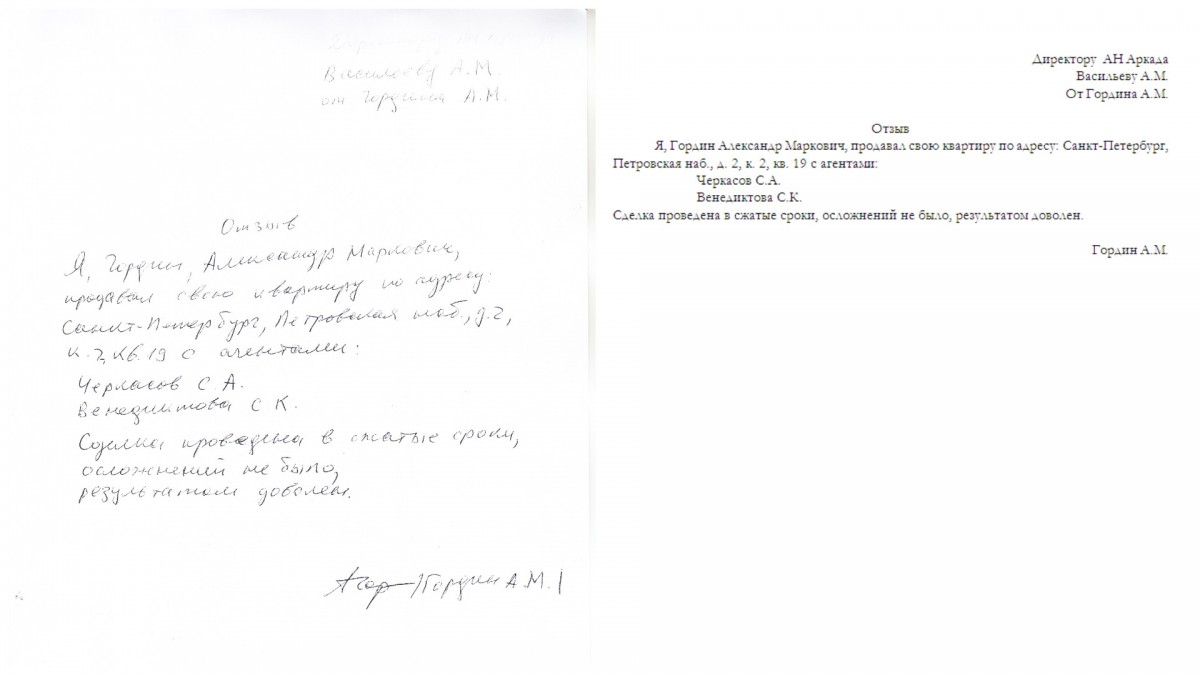 Василееву А.М.
от Гордина А.М.
Отзыв
Я, Гордин, Александр Маркович,
продавал свою квартиру по адресу:
Санкт-Петербург, Петровская наб., д.2,
к.2, кв.19 с агентами:
Черкасов С.А.
Венедиктова С К.
Сделка проведена в сжатые сроки,
осложнений не было,
результатом доволен.
/Гордин А.М./
Директору АН Аркада
Васильеву А.М.
От Гордина А.М.
Отзыв
Я, Гордин Александр Маркович, продавал свою квартиру по адресу: Санкт-Петербург,
Петровская наб., д. 2, к. 2, кв. 19 с агентами:
Черкасов С.А.
Венедиктова С.К.
Сделка проведена в сжатые сроки, осложнений не было, результатом доволен.
Гордин А.М.